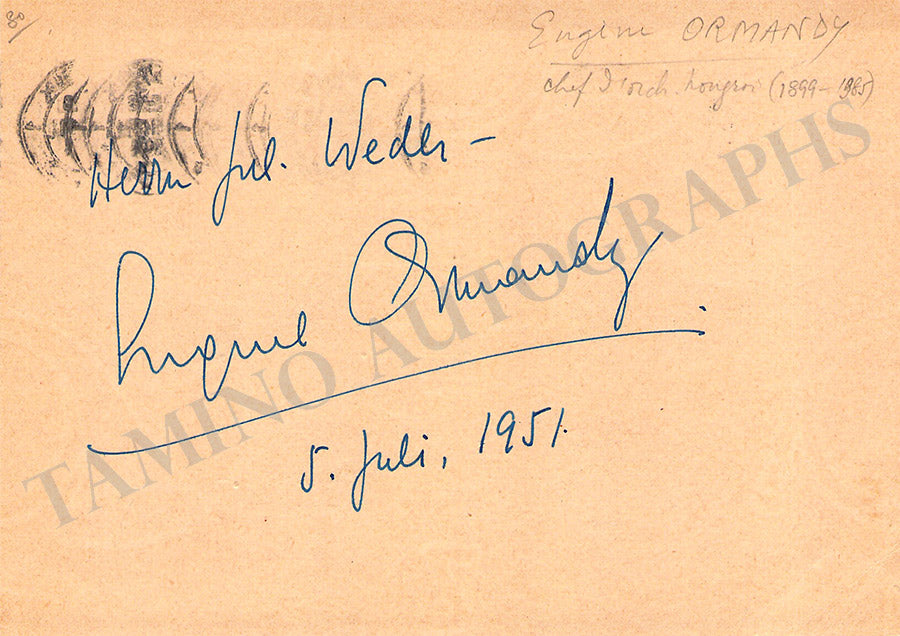 Eugène ORMANDY
chef d'orch. hongrois (1899-1985)
Herrn Jul. Weder -
Eugene Ormandy
5. Juli, 1951.
TAMINO AUTOGRAPHS